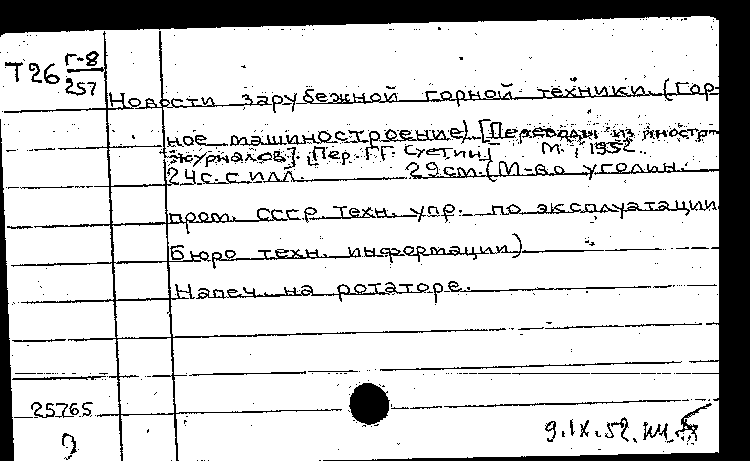 Т26 Г-8
257
Новости зарубежной горной техники. (Гор-
ное машиностроение) [Переводы из иностр.
журналов]. [Пер. Г.Г. Суетин] М., 1952.
24с. с илл. 29см. (М-во угольн.
пром. СССР. Техн. упр. по эксплуатации
Бюро техн. информации)
Напеч. на ротаторе.
25765
9.IX.52.